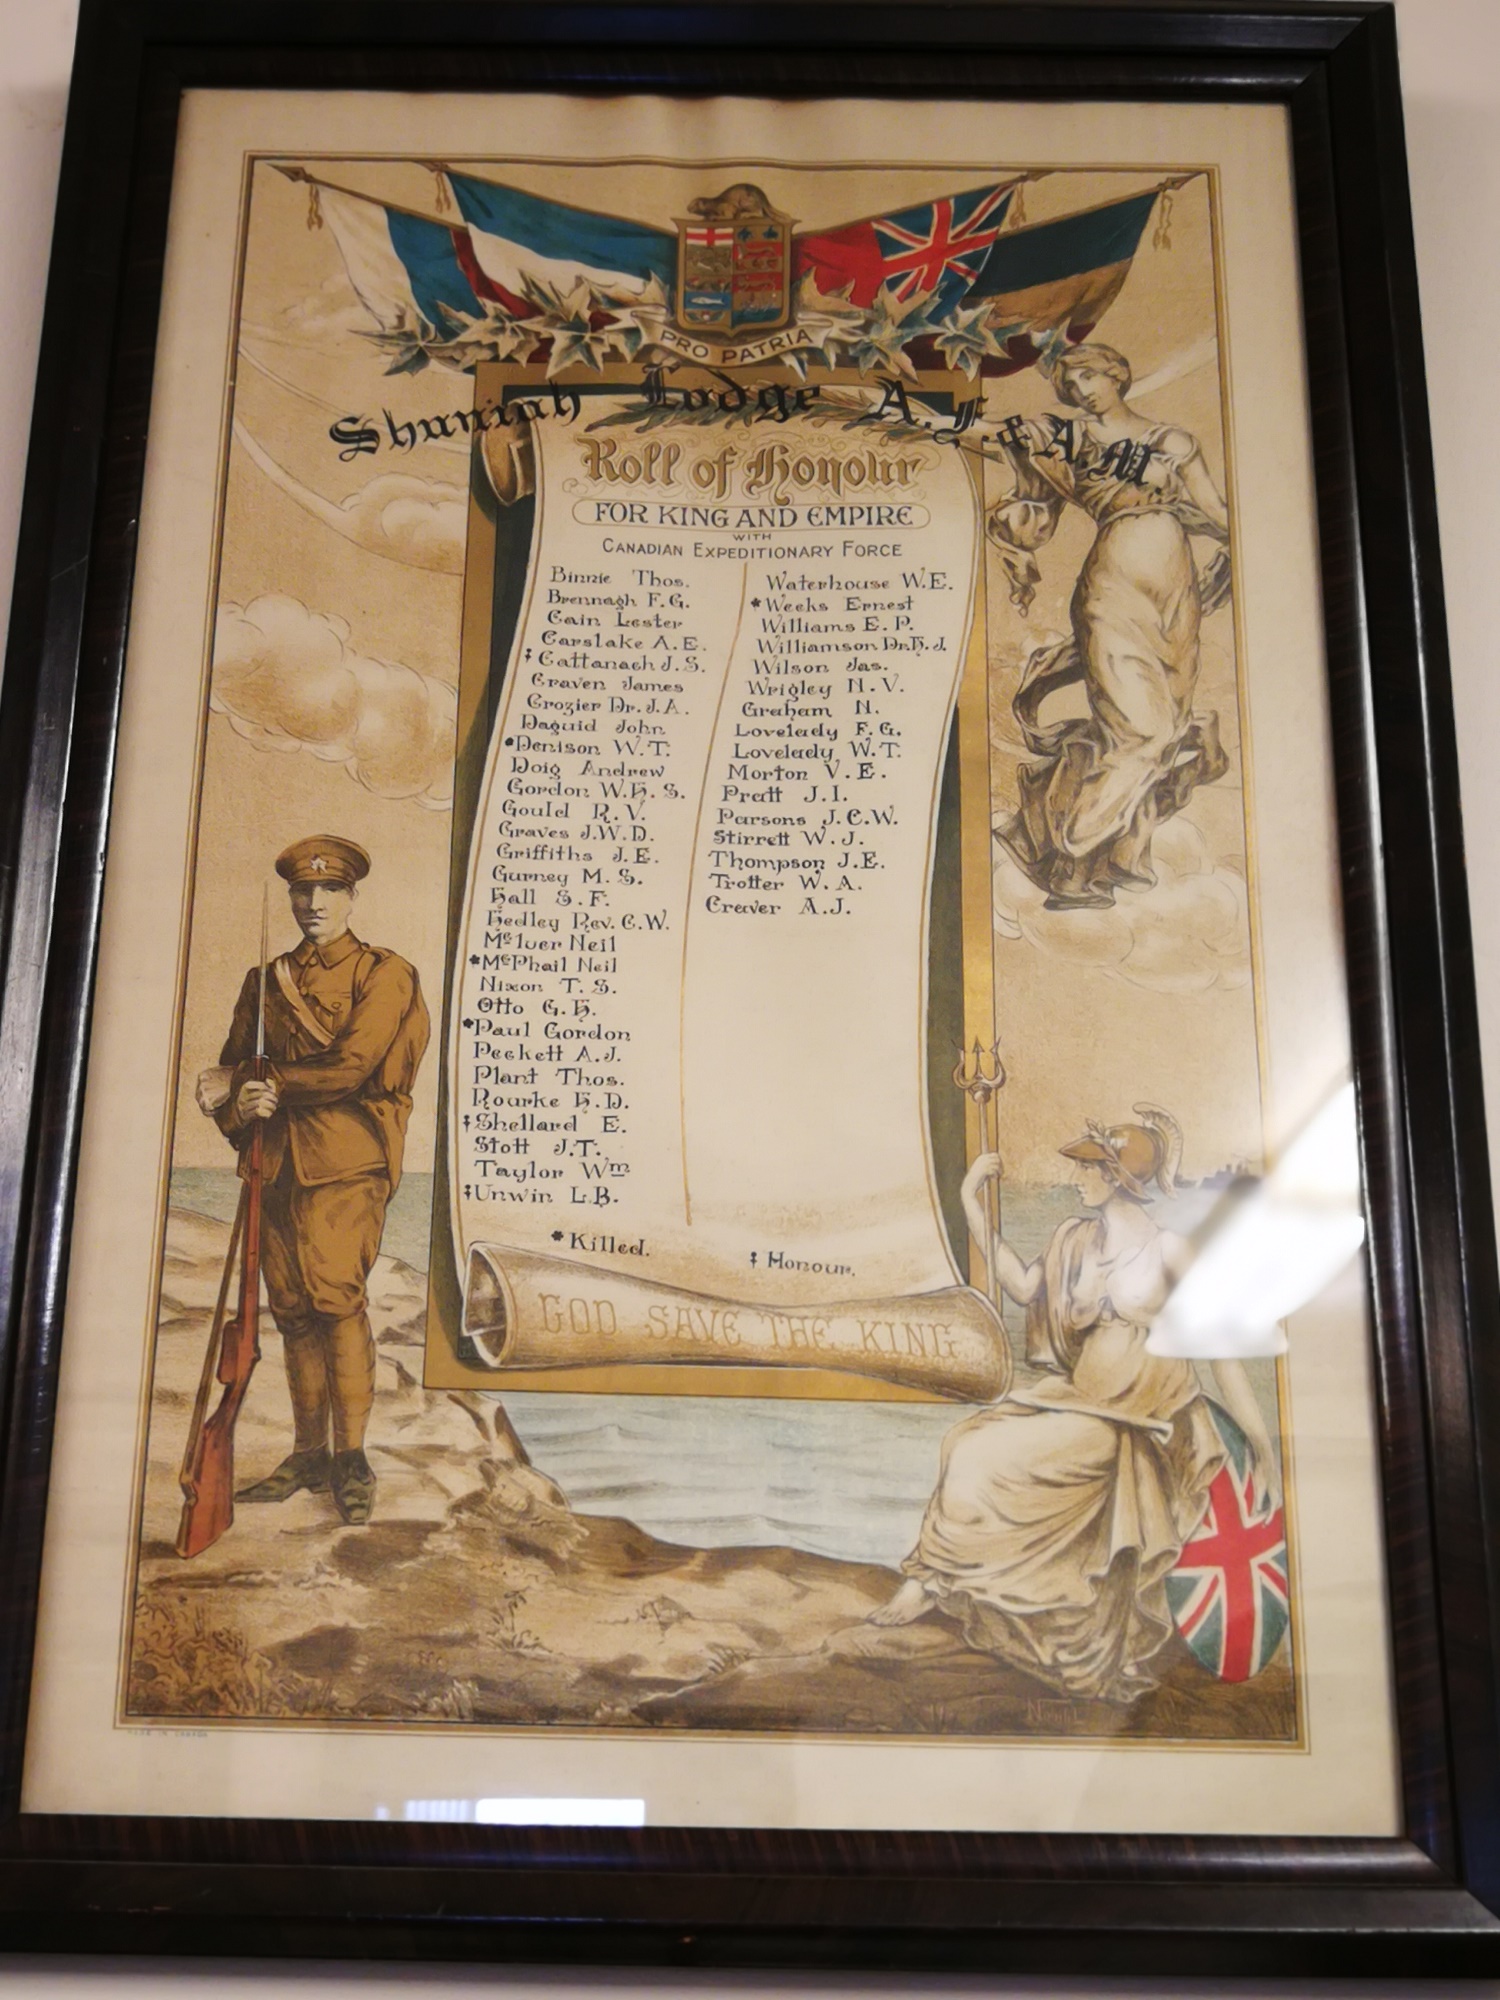 PRO PATRIA
Shuniah Lodge A.F.&A.M.
Roll of Honour
FOR KING AND EMPIRE
WITH
CANADIAN EXPEDITIONARY FORCE
Binnie Thos.
Brennagh F.G.
Cain Lester
Carslake A.E.
‡Cattanach J.S.
Craven James
Crozier Dr. J.A.
Daguid John
*Denison W.T.
Doig Andrew
Gordon W.H.S.
Gould R.V.
Graves J.W.D.
Griffiths J.E.
Gurney M.S.
Hall S.F.
Hedley Rev. C.W.
McIver Neil
*McPhail Neil
Nixon T.S.
Otto G.H.
*Paul Gordon
Peckett A.J.
Plant Thos.
Rourke H.D.
‡Shellard E.
Stott J.T.
Taylor Wm
‡Unwin L.B.
Waterhouse W.E.
*Weeks Ernest
Williams E.P.
Williamson Dr. H.J.
Wilson Jas.
Wrigley N.V.
Graham N.
Lovelady F.G.
Lovelady W.T.
Morton V.E.
Pratt J.I.
Parsons J.C.W.
Stirrett W.J.
Thompson J.E.
Trotter W.A.
Craver A.J.
*Killed.
‡Honour.
GOD SAVE THE KING
MADE IN CANADA